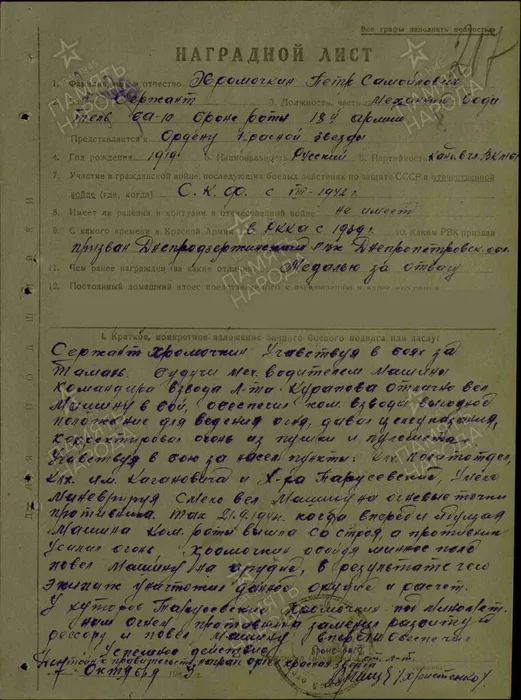 Все графы заполнять полностью
НАГРАДНОЙ ЛИСТ
1. Фамилия, имя и отчество Хромочкин Петр Самойлович
Сержант 3. Должность, часть Механик води
тель БА-10 бронероты 18й армии
Представляется к Ордену Красной звезды
4. Год рождения 1919г. 5. Национальность Русский 6. Партийность Канд. вл. ВКП(б)
7. Участие в гражданской войне, последующих боевых действиях по защите СССР и отечественной
войне (где, когда) С.К.Ф. с 1942г.
8. Имеет ли ранения и контузии в отечественной войне не имеет
9. С какого времени в Красной Армии в РККА с 1939г. 10. Каким РВК призван
призван Днепродзержинским РВК Днепропетровск. обл.
11. Чем ранее награжден (за какие отличия) Медалью за отвагу
12. Постоянный домашний адрес
I. Краткое, конкретное изложение личного боевого подвига или заслуг
Сержант Хромочкин Учавствуя в боях за
Тамань. Будучи мех. водителем Машины
Командира взвода Л-та Курапова отлично вел
Машину в бой, обеспечил ком. взвода выгодное
положение для ведения огня, давал целеуказания,
Корректировал огонь из пушки и пулемета.
Учавствуя в бою за насел. пункты: К/х политотдел,
К/х им. Кагановича и Х-ра Парусовский, Умело
Маневрируя смело вел Машину на огневые точки
противника. Так 21.9.194 г. когда впереди идущая
Машина Ком. роты вышла со строя, а противник
усилил огонь Хромочкин обойдя минное поле
повел Машину на орудие, в результате чего
Экипаж уничтожил данное орудие и расчет.
У хуторов Парусовский Хромочкин под Миномет-
ным огнем противника заменил разбитую
рессору и повел Машину вперед обеспечив
Успешное действие
Достоин к правительств. награде орден красная звезда
7 Октября
ПАМЯТЬ НАРОДА